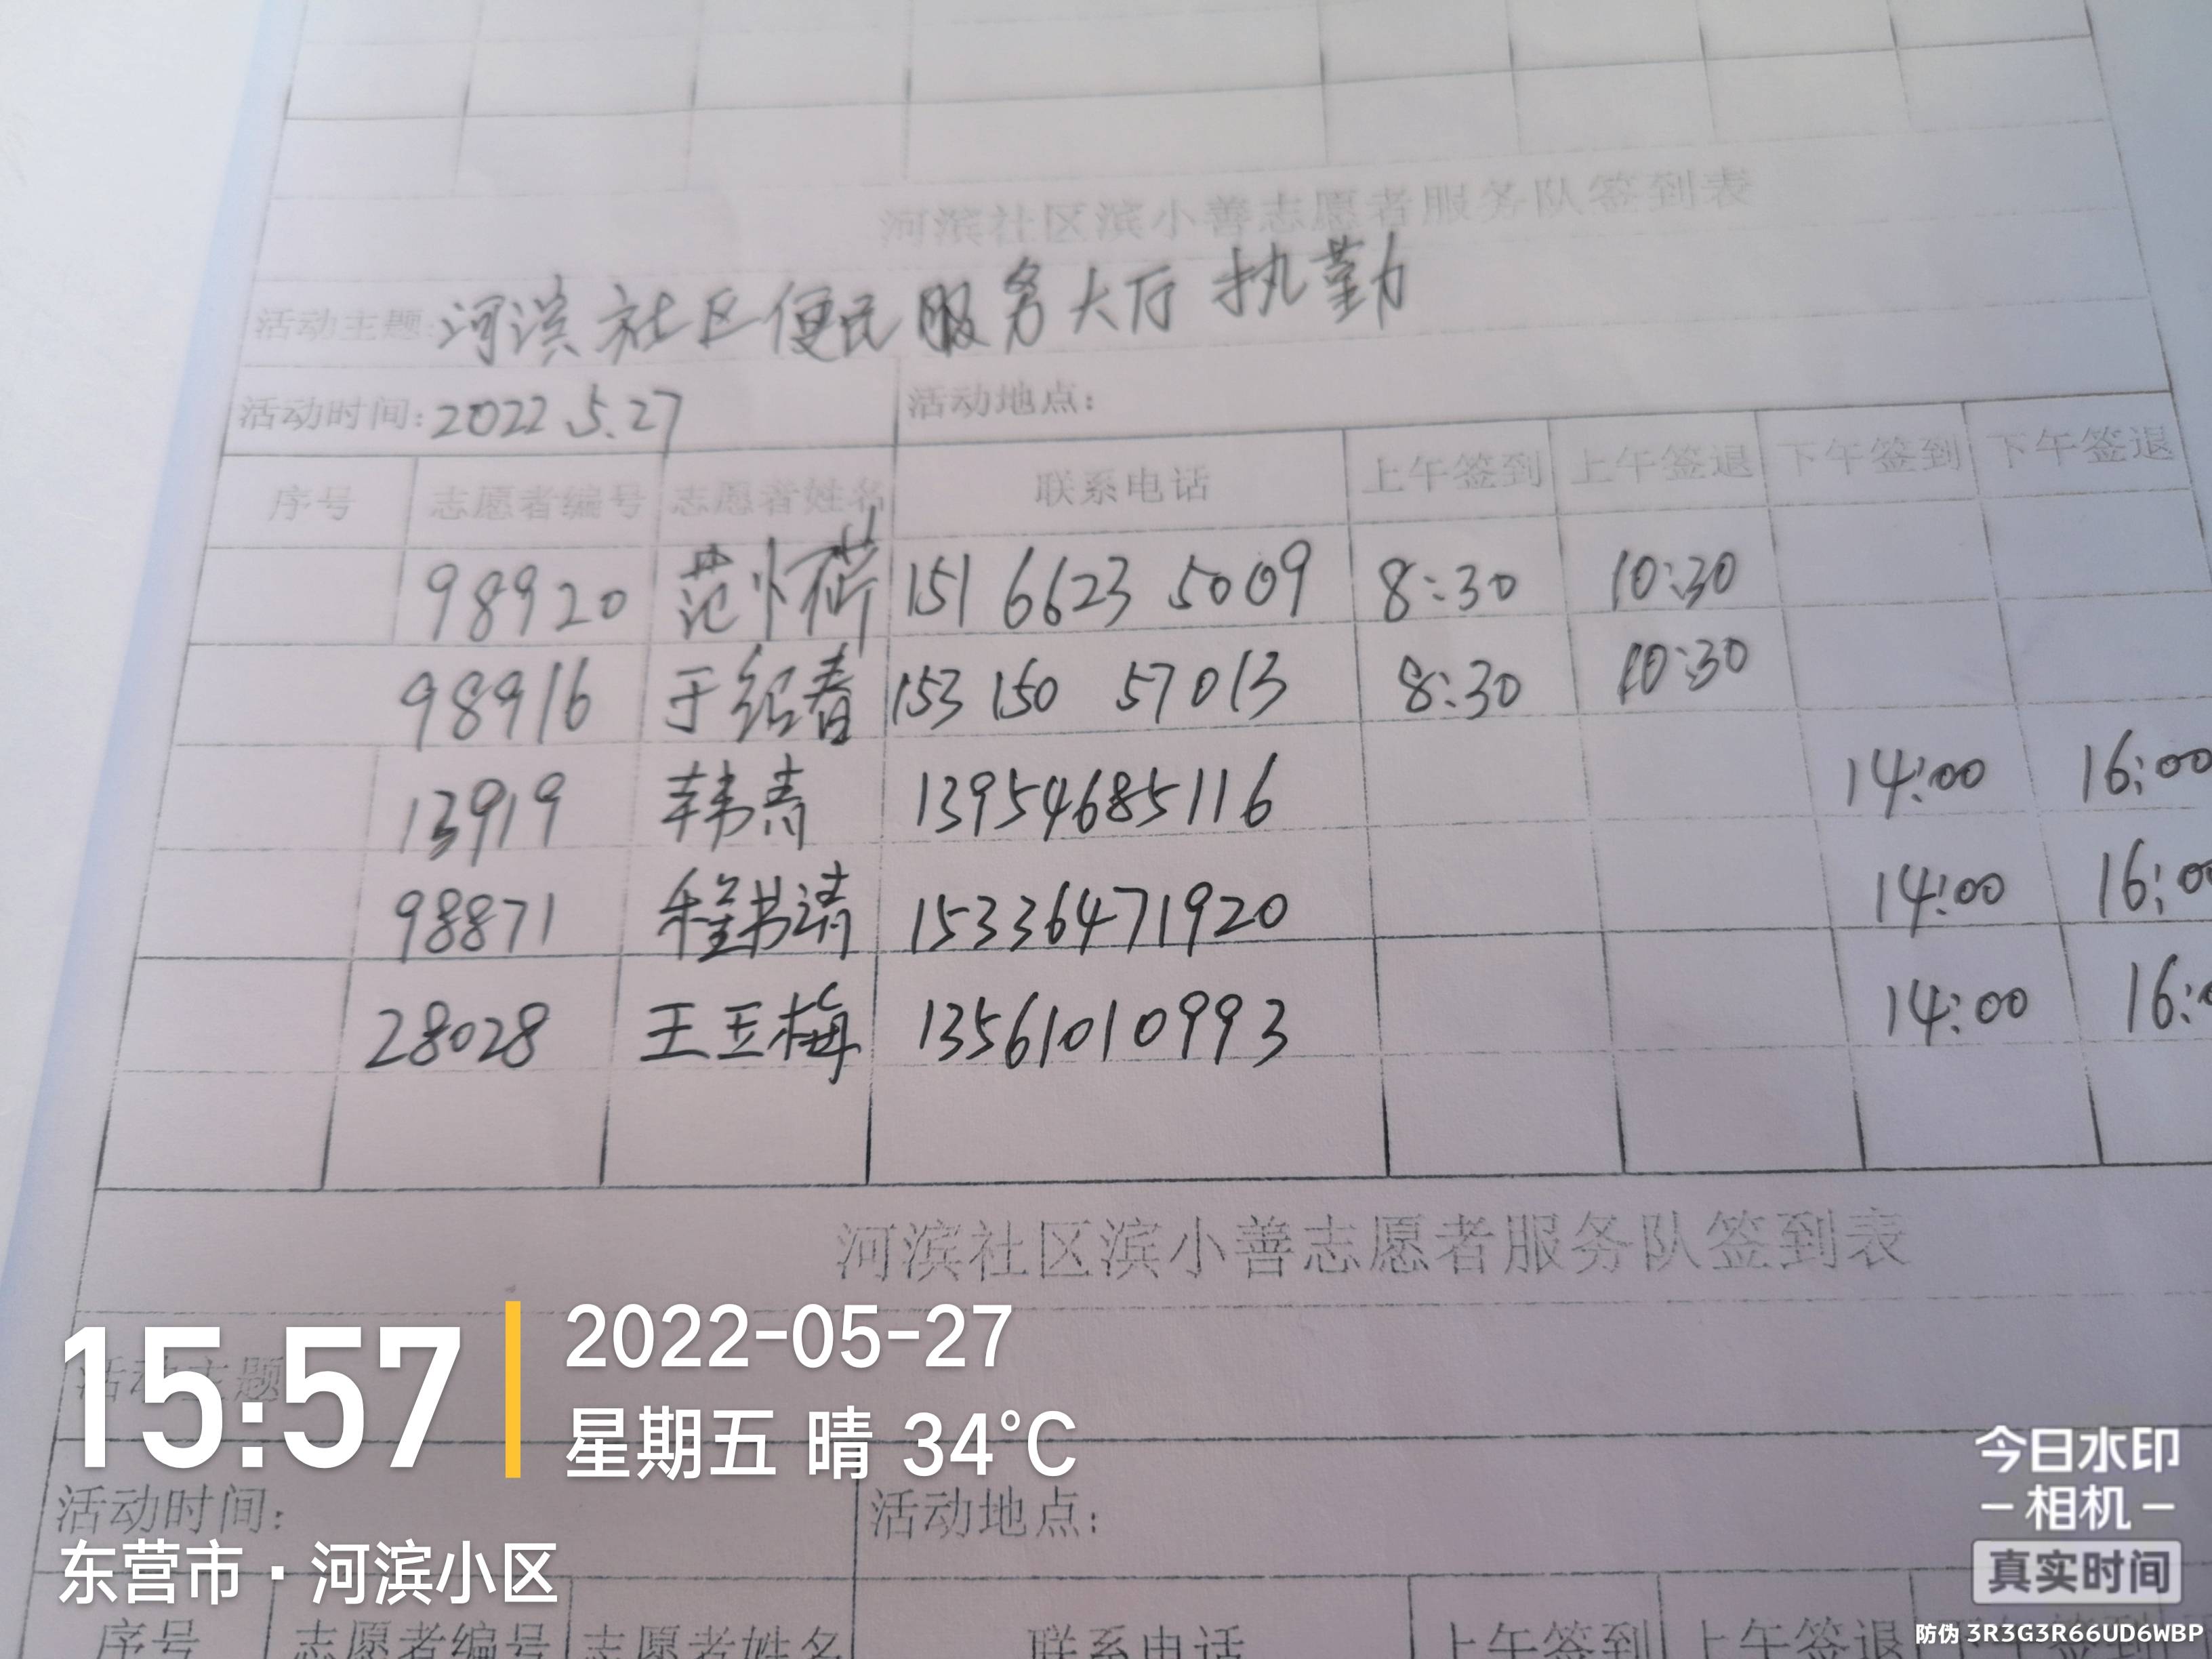 河滨社区滨小善志愿者服务队签到表
活动主题: 河滨社区便民服务大厅执勤
活动时间: 2022.5.27 活动地点:
序号 志愿者编号 志愿者姓名 联系电话 上午签到 上午签退 下午签到 下午签退
98920 范 151 6623 5009 8:30 10:30
98916 于绍春 153 150 57013 8:30 10:30
13919 韩青 13954685116 14:00 16:00
98871 程书清 15336471920 14:00 16:00
28028 王玉梅 13561010993 14:00 16:
河滨社区滨小善志愿者服务队签到表
活动主题
活动时间: 活动地点:
序号 志愿者编号 志愿者姓名 联系电话 上午签到 上午签退 下午签到
15:57
2022-05-27
星期五 晴 34°C
东营市·河滨小区
今日水印
-相机-
真实时间
防伪 3R3G3R66UD6WBP